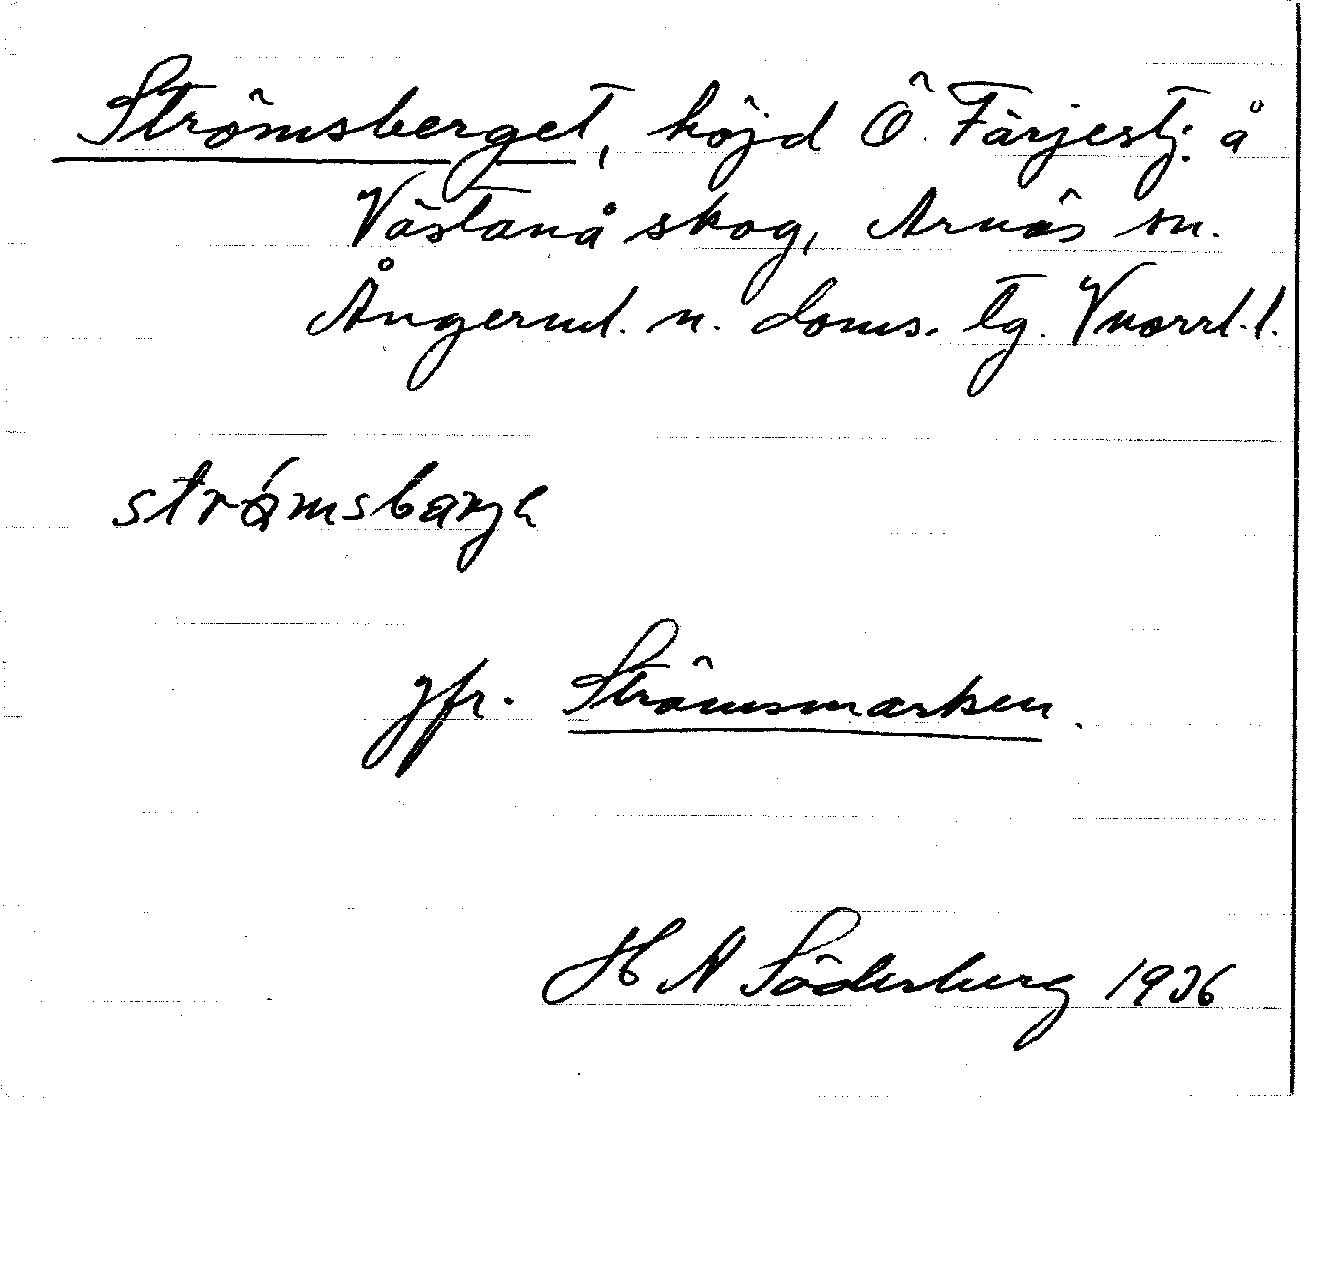 Strömsberget, höjd Ö. Färjestj. å
Västanå skog, Arnäs sn.
Ångerml. n. doms. tg. Vnorrl. l.
strømsbærje
jfr. Strömsmarken.
H N Söderberg 1936